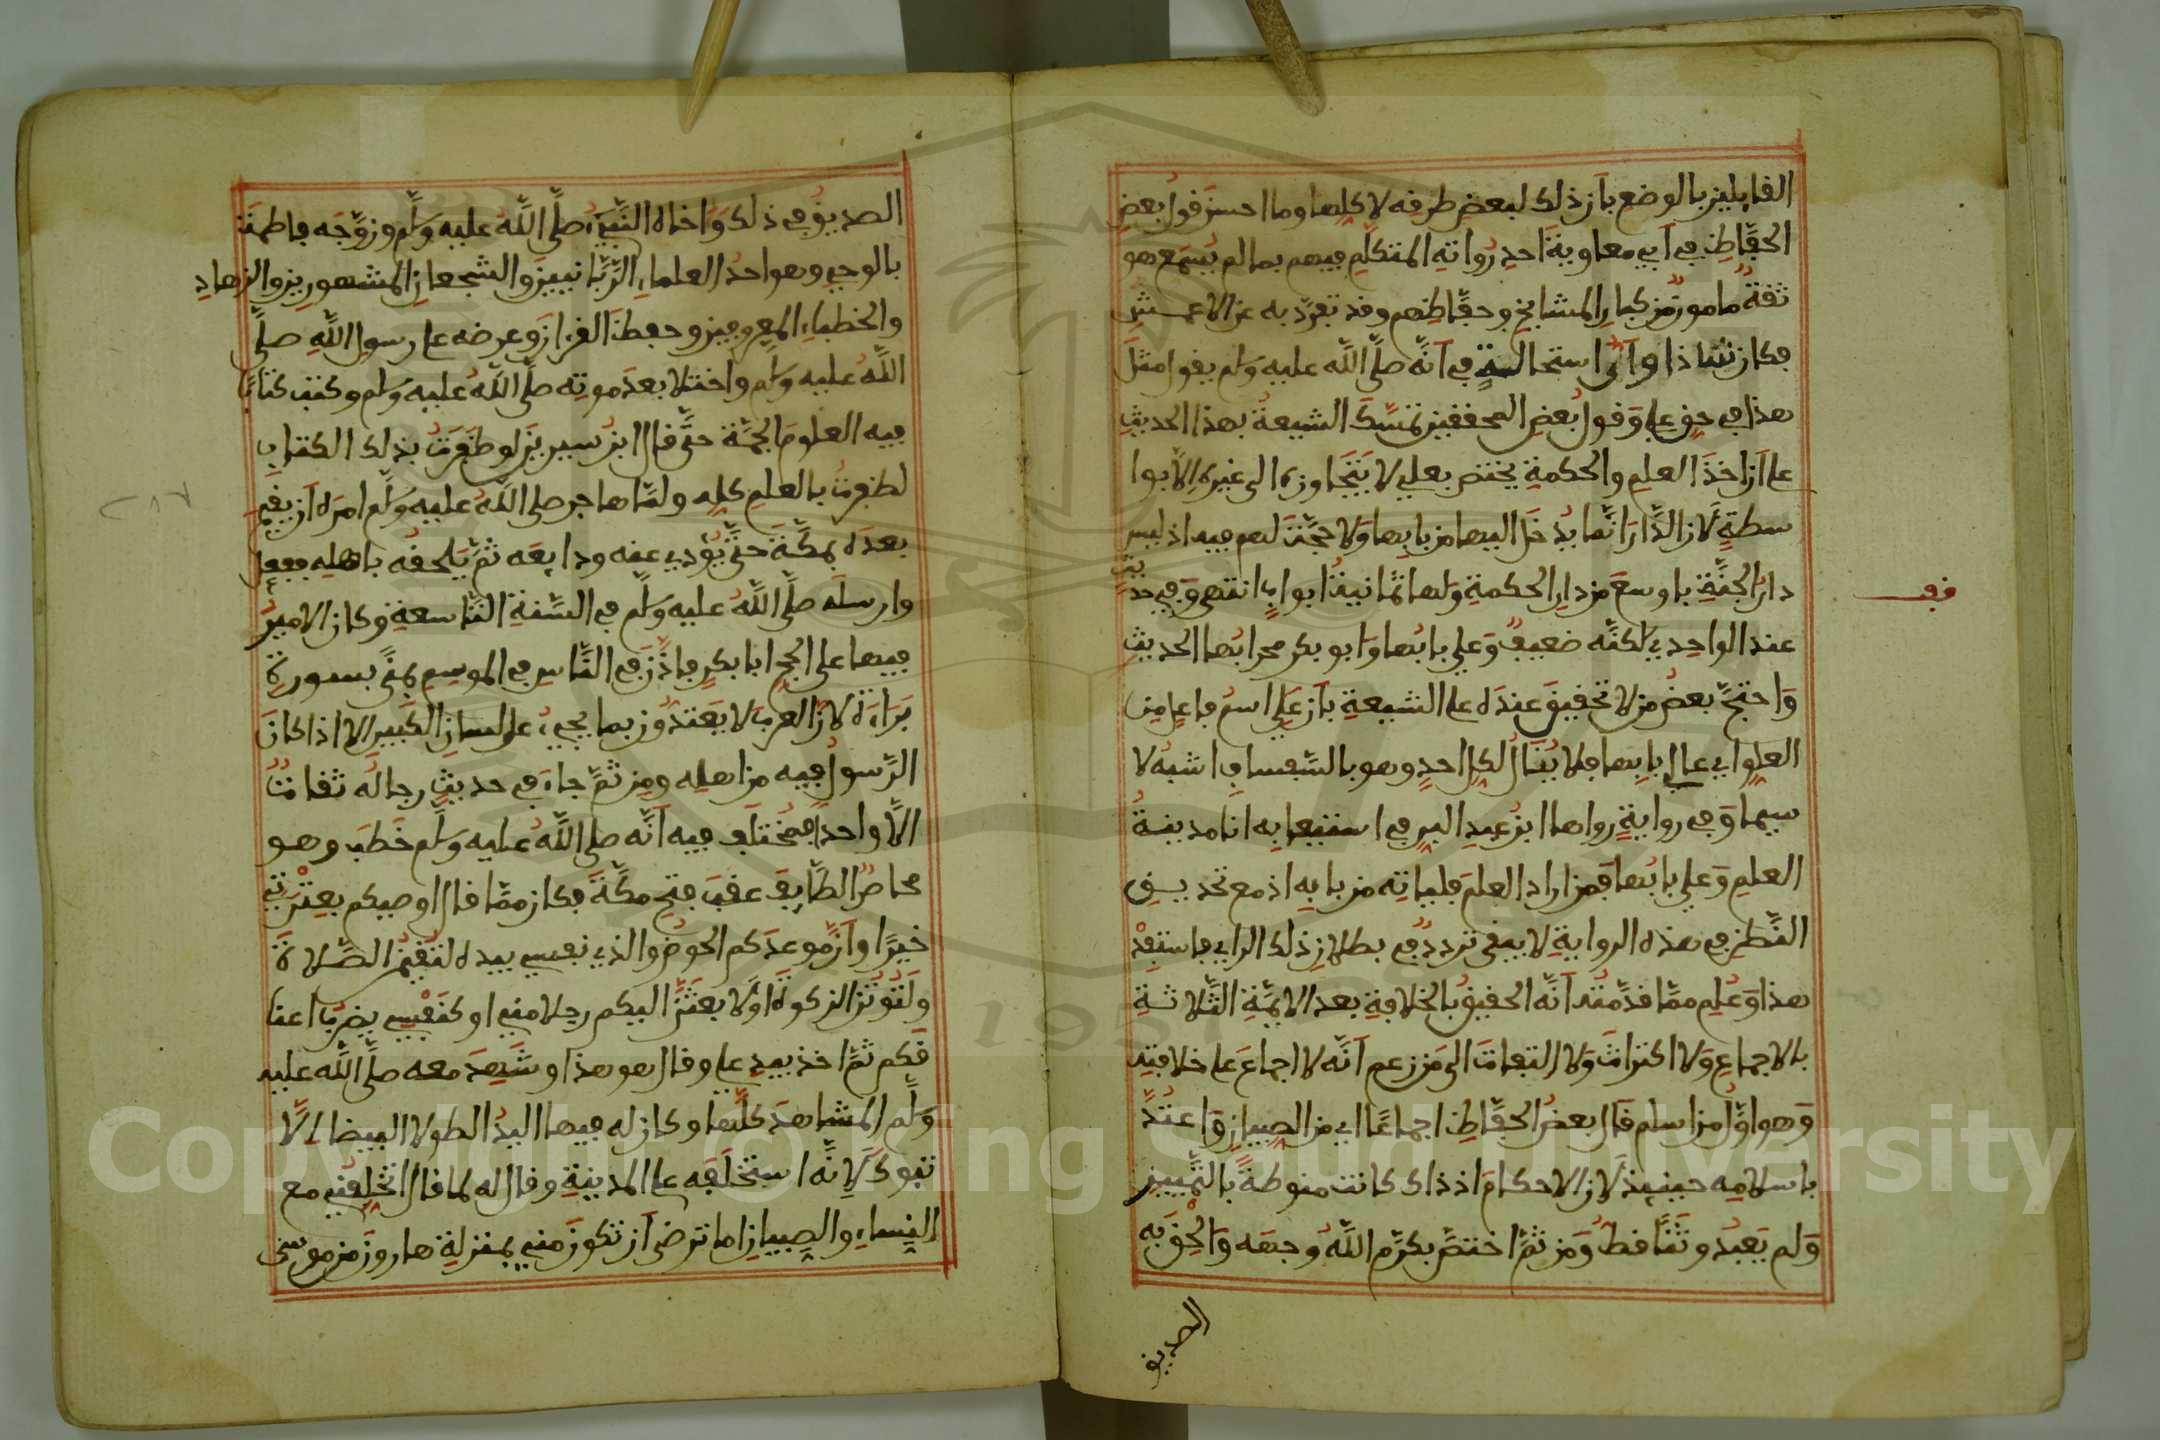 القايلين بالوضع بأن ذلك لبعض طرقه لا كلها وما احسن قول بعض
الحفاظ في أبي معاوية احد رواته المتكلم فيهم بما لم يسمع هو
ثقة مامون من كبار المشايخ وحفاظهم وقد تفرد به عن الاعمش
فكان شاذا وأي استحالة في أنه صلى الله عليه وسلم يقول مثل
هذا في حق علي وقول بعض المحققين تمسك الشيعة بهذا الحديث
على أن اخذ العلم والحكمة يختص بعلي لا يتجاوزه الى غيره الا بوا
سطة لان الدار انما يدخل اليها من بابها ولا حجة لهم فيه اذ ليس
دار الجنة باوسع من دار الحكمة ولها ثمانية ابواب انتهى وفي حديث
عند الواحدي لكنه ضعيف وعلي بابها وابو بكر محرابها الحديث
واحتج بعض من لا تحقيق عنده على الشيعة بأن علي اسم فاعل من
العلو اي عال بابها فلا ينال لكل احد وهو بالسفساف اشبه لا
سيما وفي رواية رواها ابن عبد البر في استيعابه انا مدينة
العلم وعلي بابها فمن اراد العلم فلياته من بابه اذ مع تحديق
النظر في هذه الرواية لا يبقى تردد في بطلان ذلك الراي فاستفد
هذا وعلم مما قدمته أنه الحقيق بالخلافة بعد الايمة الثلاثة
بالاجماع ولا اكتراث ولا التفات الى من زعم أنه لا اجماع على خلافته
وهو اول من اسلم قال بعض الحفاظ اجماعا اي من الصبيان واعتد
باسلامه حينيذ لان الاحكام اذ ذاك كانت منوطة بالتمييز
ولم يعبد وثنا قط ومن ثم اختص بكرم الله وجهه والحق به
الصديق
قف
الصديق في ذلك واخاه النبي صلى الله عليه وسلم وزوجه فاطمة
بالوحي وهو احد العلماء الربانيين والشجعان المشهورين والزهاد
والخطباء المعروفين وحفظ القرآن وعرضه على رسول الله صلى
الله عليه وسلم واختلا بعد موته صلى الله عليه وسلم وكتب كتابا
فيه العلوم الجمة حتى قال ابن سيرين لو ظفرت بذلك الكتاب
لظفرت بالعلم كله ولما هاجر صلى الله عليه وسلم امره أن يقيم
بعده بمكة حتى يؤدي عنه ودايعه ثم يلحقه باهله ففعل
وارسله صلى الله عليه وسلم في السنة التاسعة وكان الامير
فيها على الحج ابا بكر فاذن في الناس في الموسم بمنى بسورة
براءة لان العرب لا يعتدون بما يجيء على لسان الكبير الا اذا كان
الرسول فيه من اهله ومن ثم جاء في حديث رجاله ثقات
الا واحدا فمختلف فيه أنه صلى الله عليه وسلم خطب وهو
محاصر الطايف عقب فتح مكة فكان مما قال اوصيكم بعترتي
خيرا وأن موعدكم الحوض والذي نفسي بيده لتقيمن الصلاة
ولتوتن الزكوة او لا بعثن اليكم رجلا مني او كنفسي يضرب اعنا
قكم ثم اخذ بيد علي وقال هو هذا وشهد معه صلى الله عليه
وسلم المشاهد كلها وكان له فيها اليد الطولا البيضاء الا
تبوك لانه استخلفه على المدينة وقال له لما قال اتخلفني مع
النساء والصبيان اما ترضى أن تكون مني بمنزلة هارون من موسى